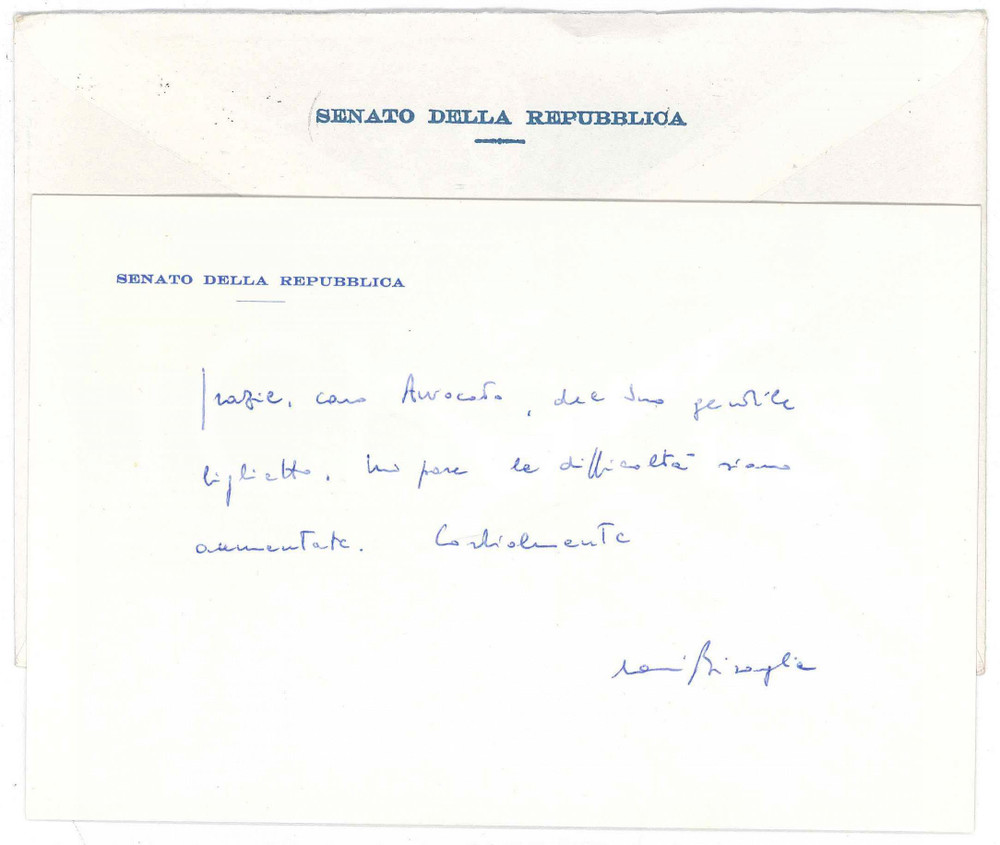 SENATO DELLA REPUBBLICA
SENATO DELLA REPUBBLICA
Grazie, caro Avvocato, del Suo gentile
biglietto. Mi pare le difficoltà siano
aumentate. Cordialmente
Toni Bisaglia